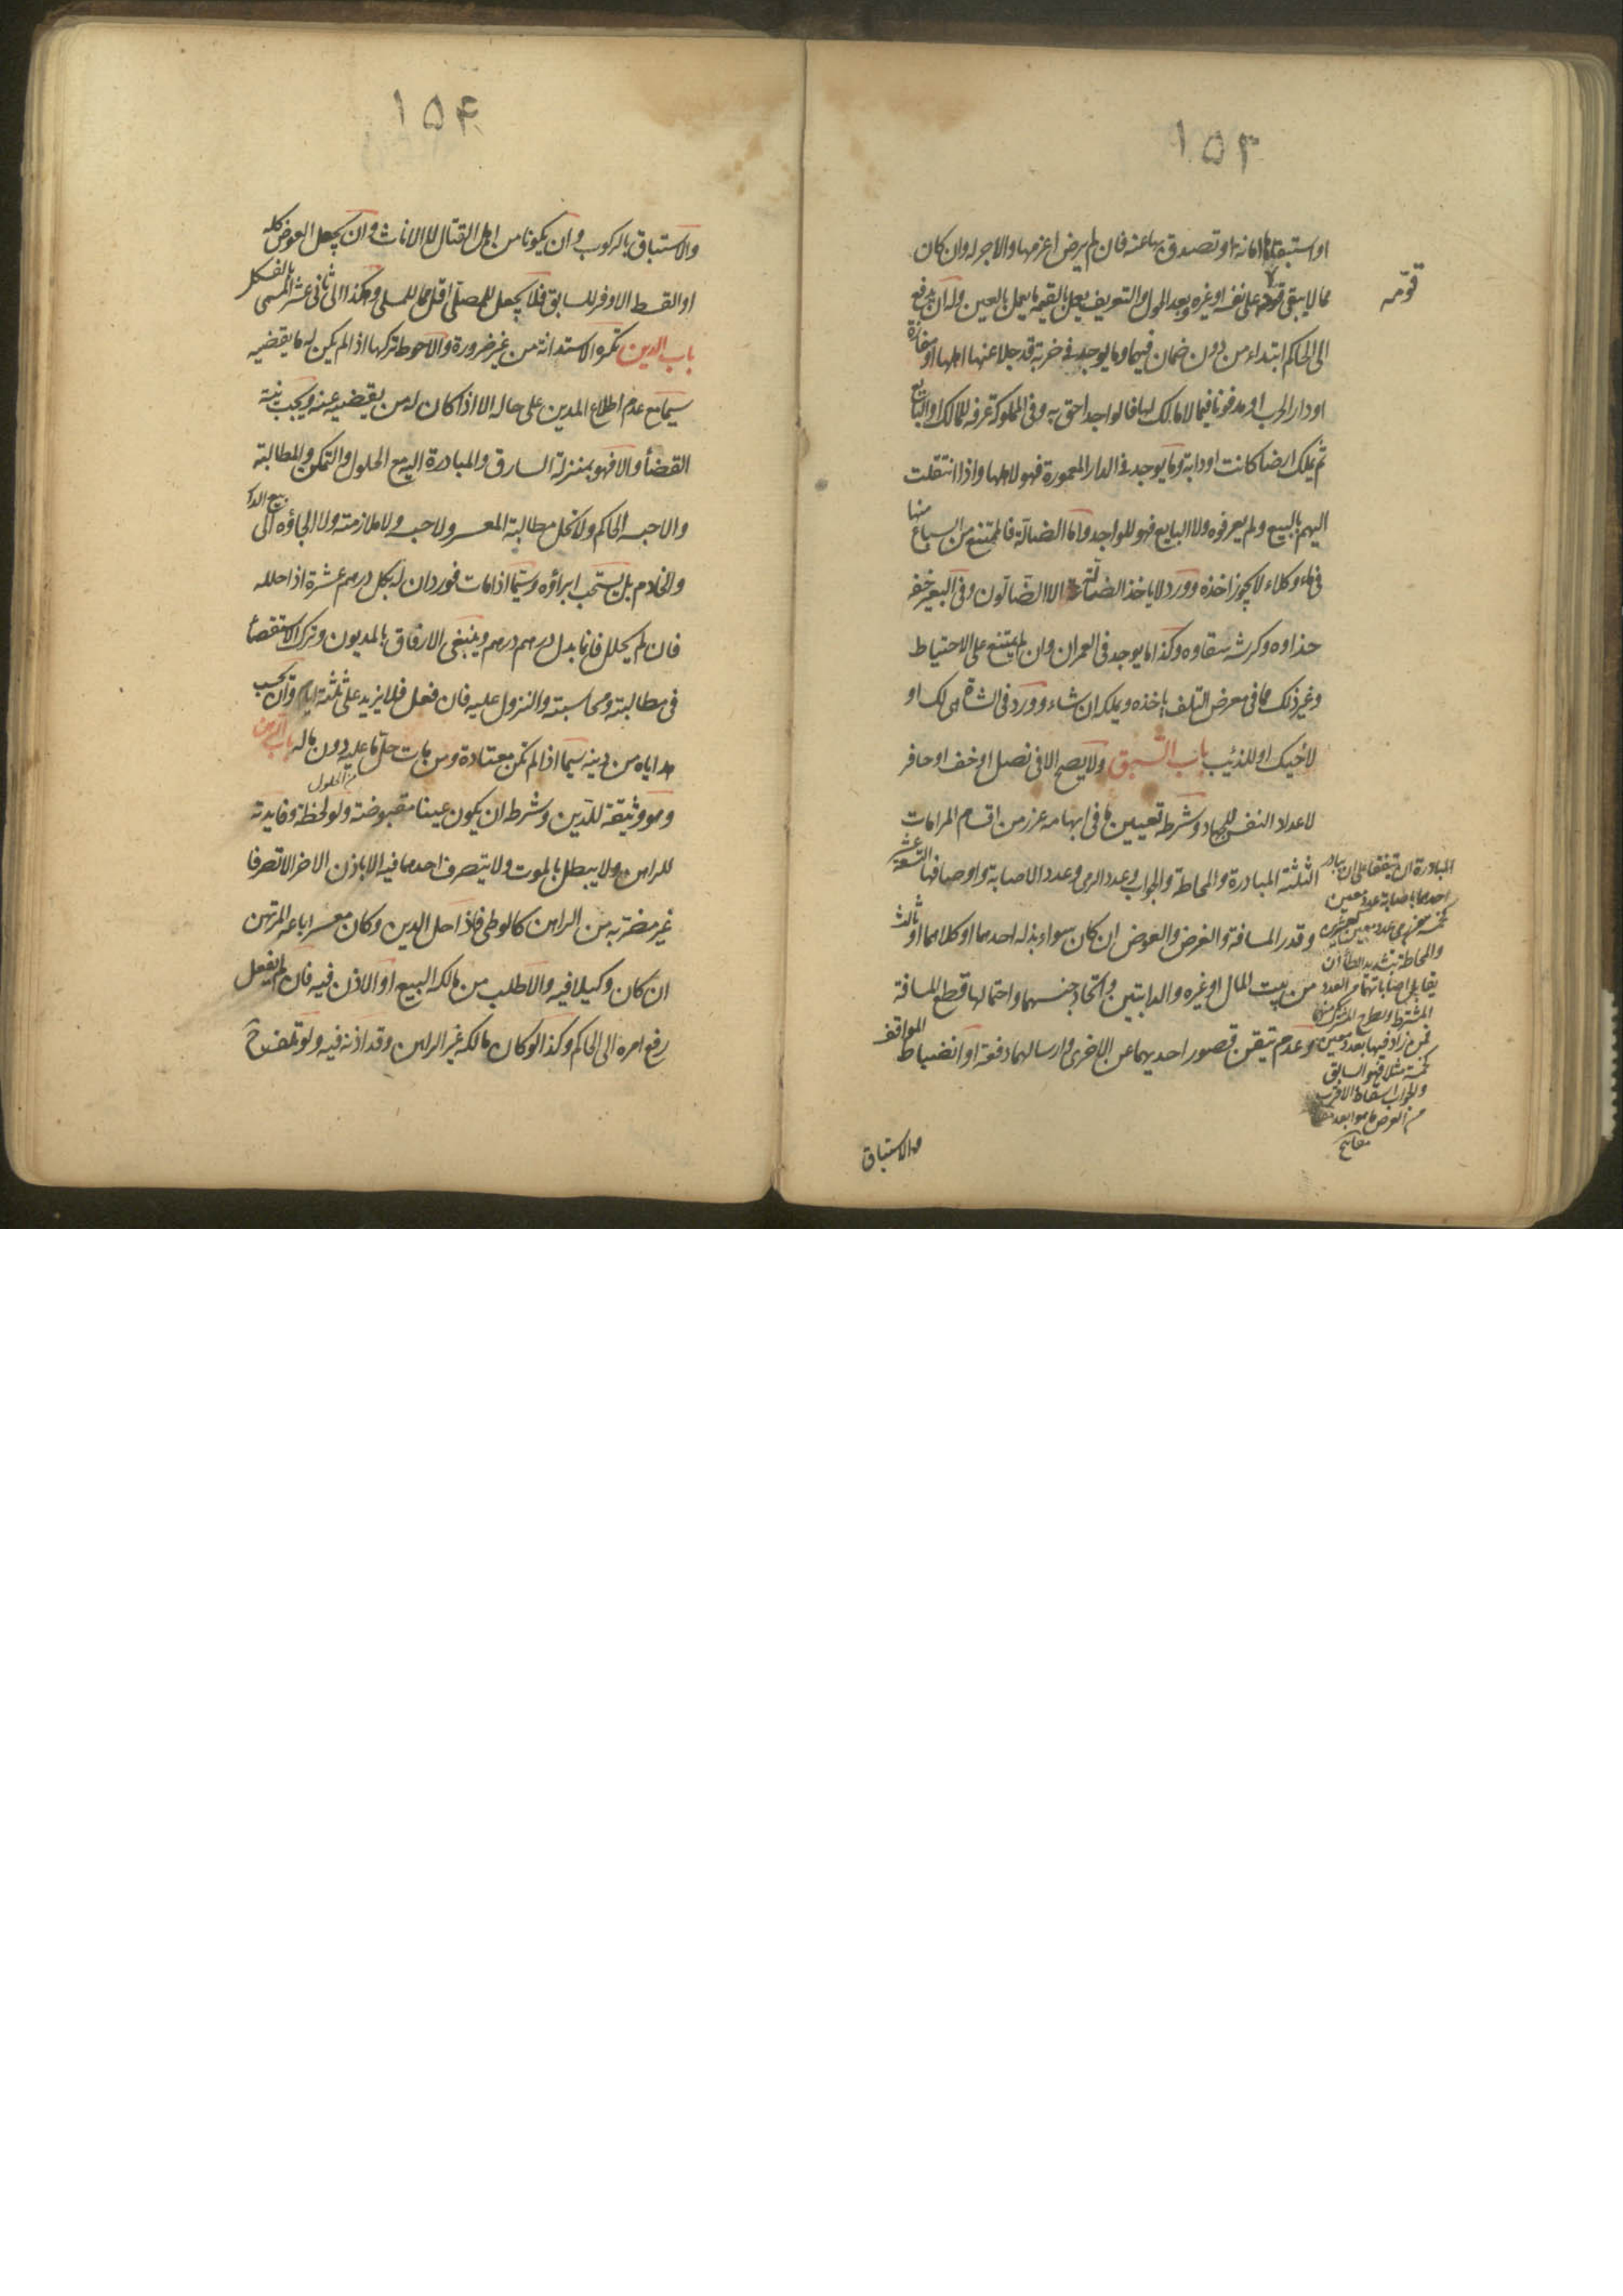 ۱۵۳
او استبقاها امانة او تصدق بها عنه فان لم يرض اغرمها والاجر له وان كان
مما لا يبقى قومه على نفسه او غيره وبعد الحول والتعريف يعمل بالقيمة ما يعمل بالعين وله ان يدفع
قوّمه
الى الحاكم ابتداء من دون ضمان فيها وما يوجد في خربة قد جلا عنها اهلها او مفازة
او دار الحرب او مدفونا فيما لا مالك لها فالواجد احق به وفي المملوكة عرفه المالك او البايع
ثم يملك ارضا كانت او دابة وما يوجد في الدار المعمورة فهو لاهلها واذا انتقلت
اليهم بالبيع ولم يعرفوه ولا البايع فهو للواجد واما الضالة فالممتنع من السباع منها
في ماء وكلاء لا يجوز اخذه وورد لا ياخذ الضالة الا الضالون وفي البعير خفه
حذاوه وكرشه سقاوه وكذا ما يوجد في العمران وان لم يمتنع على الاحتياط
وغير ذلك مما في معرض التلف ياخذه ويملكه ان شاء وورد في الشاة هي لك او
لاخيك او للذئب باب السبق ولا يصح الا في نصل او خف او حافر
لاعداد النفس للجهاد وشرطه تعيين ما في ابهامه غرر من اقسام المرامات
الثلثة المبادرة والمحاطة والجواب وعدد الرمي وعدد الاصابة واوصافها التسعة عشر
وقدر المسافة والغرض والعوض ان كان سواء بذله احدهما او كلاهما او ثالث
من بيت المال او غيره والدابتين واتحاد جنسهما واحتمالها قطع المسافة
وعدم تيقن قصور احديهما عن الاخرى وارسالهما دفعة او انضباط المواقف
المبادرة ان يتفقا على ان يبادر
احدهما باصابة عدد معين
والمحاطة بتشديد الطاء ان
يقابل اصاباتهما من العدد
المشترط ويطرح المشترك
فمن زاد فيها بعدد معين
كخمسة مثلا فهو السابق
والجواب اسقاط الاقرب
من الغرض ما هو ابعد
مفاتيح
والاستباق
۱۵۴
والاستباق بالركوب وان يكونا من اهل القتال لا الاناث وان يجعل العوض كله
او القسط الاوفر للسابق فلا يجعل للمصلي اقل مما للمسلي وهكذا الى ثاني عشر المسمى بالفسكل
باب الدين تكره الاستدانة من غير ضرورة والاحوط تركها اذا لم يكن له ما يقضيه
سيما مع عدم اطلاع المدين على حاله الا اذا كان له من يقضيه عنه ويجب نية
القضأ والا فهو بمنزلة السارق والمبادرة اليه مع الحلول والتمكن والمطالبة
والا حبسه الحاكم ولا تحل مطالبة المعسر ولا حبسه ولا ملازمته ولا الجاؤه الى بيع الدار
والخادم بل يستحب ابراؤه وسيما اذا مات فورد ان له بكل درهم عشرة اذا حلله
فان لم يحلل فانما بدل درهم درهم وينبغي الارفاق بالمديون وترك الاستقصأ
في مطالبته ومحاسبته والنزول عليه فان فعل فلا يزيد على ثلثة ايام وان يحسب
هداياه من دينه سيما اذا لم تكن معتادة ومن مات حل ما عليه دون ماله باب الرهن
من الحلول
وهو وثيقة للدين وشرطه ان يكون عينا مقبوضة ولو لحظة وفايدته
للراهن ولا يبطل بالموت ولا يتصرف احدهما فيه الا باذن الاخر الا تصرفا
غير مضر به من الراهن كالوطي فاذا حل الدين وكان معسرا باعه المرتهن
ان كان وكيلا فيه والا طلب من مالكه البيع او الاذن فيه فان لم يفعل
رفع امره الى الحاكم وكذا لو كان مالكه غير الراهن وقد اذنه فيه ولو تلف